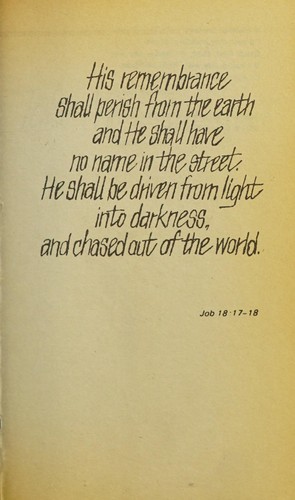 His remembrance
shall perish from the earth
and He shall have
no name in the street.
He shall be driven from light
into darkness,
and chased out of the world.
Job 18:17-18